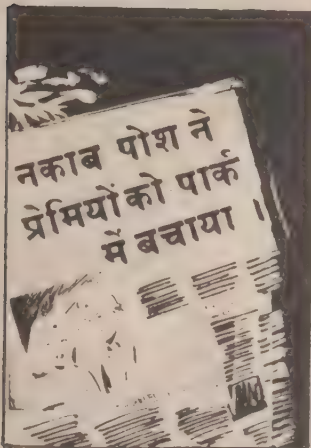 नकाब पोश ने
प्रेमियों को पार्क
में बचाया ।